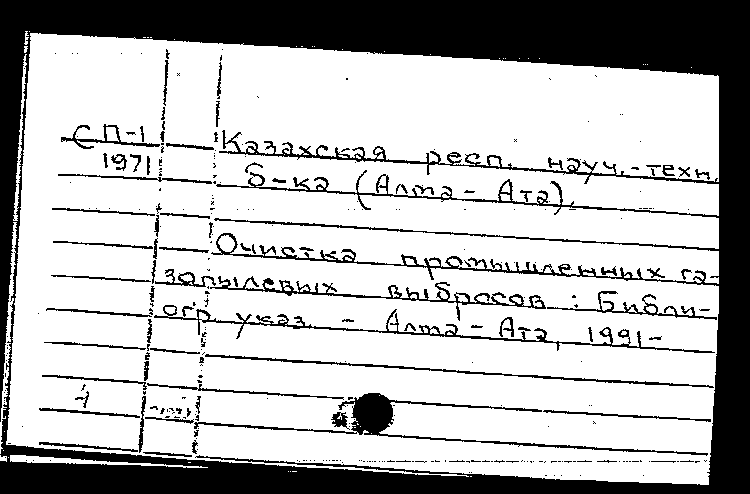 СП-1
1971
Казахская респ. науч.-техн.
б-ка (Алма-Ата).
Очистка промышленных га-
зопылевых выбросов : Библи-
огр. указ. - Алма-Ата, 1991-
4